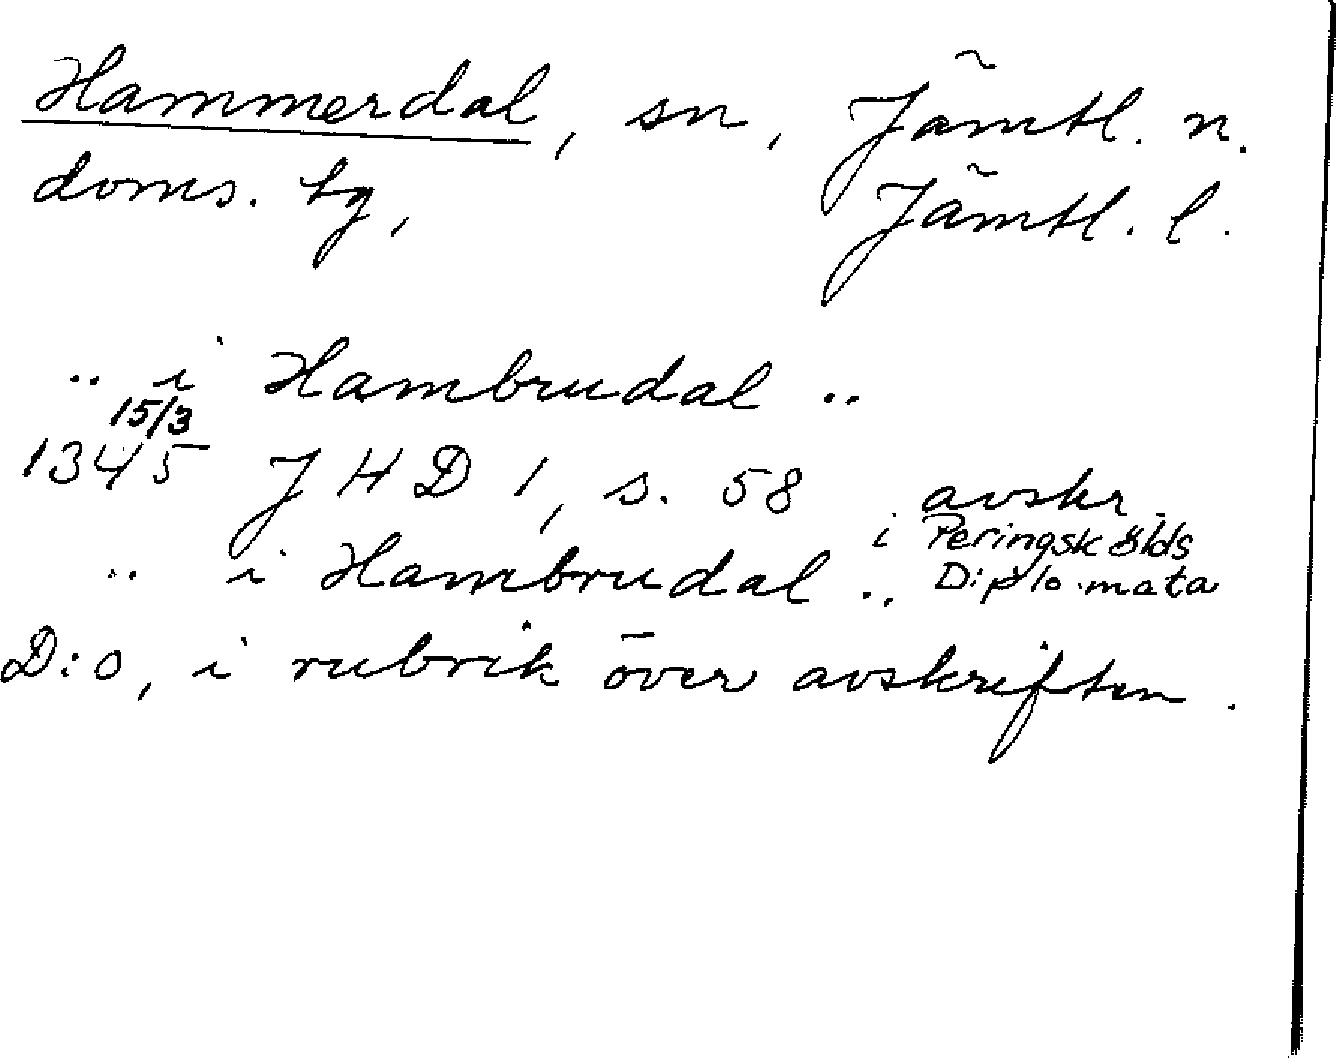 Hammerdal, sn, Jämtl. n.
doms. tg, Jämtl. l.
.. i Hambrudal ..
15/3
1345 J H D 1, s. 58 avskr.
i Peringskölds
.. i Hambrudal .. Diplomata
D:o, i rubrik över avskriften.